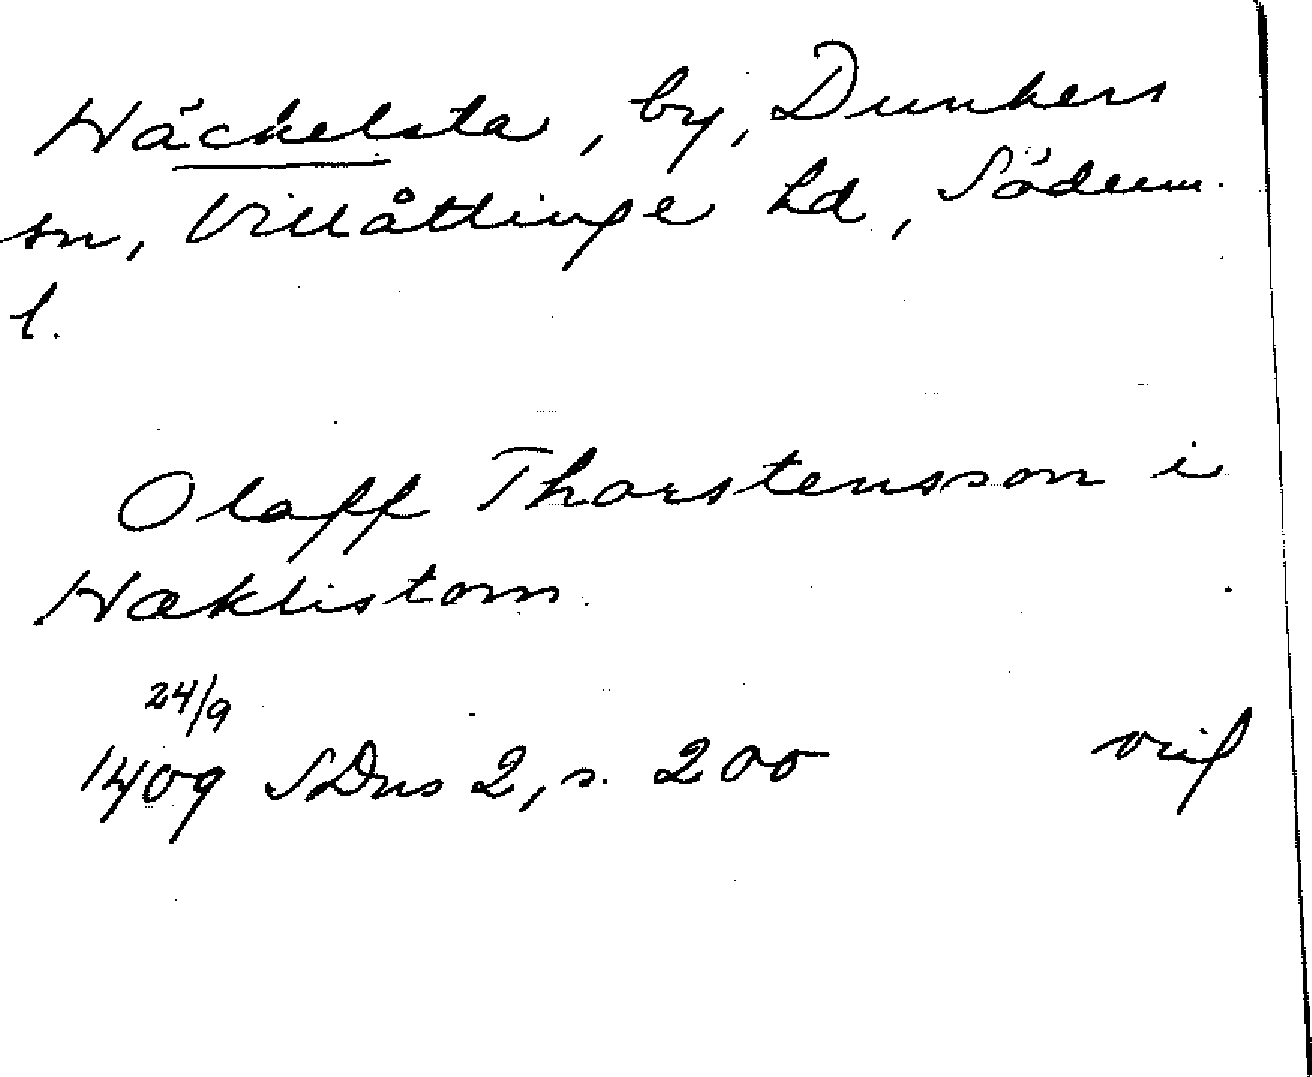 Häckelsta, by, Dunkers
sn, Villåttinge hd, Söderm.
l.
Olaff Thorstensson i
Hæklistom.
24/9
1409 SDns 2, s. 200 orig